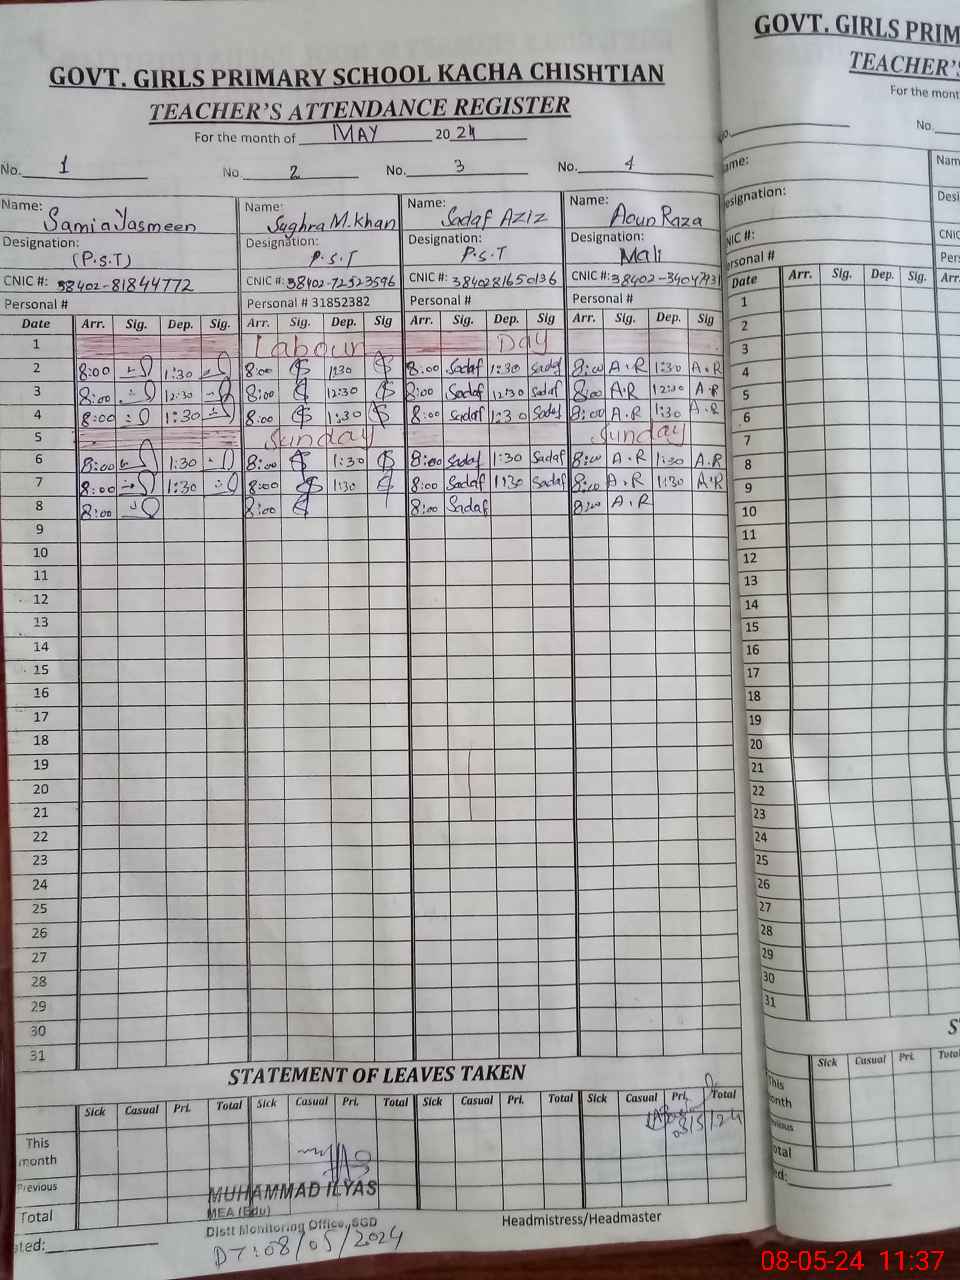 GOVT. GIRLS PRIMARY SCHOOL KACHA CHISHTIAN
TEACHER'S ATTENDANCE REGISTER
For the month of MAY 2024
No. 1 No. 2 No. 3 No. 4
Name: Samia Yasmeen Name: Sughra M. Khan Name: Sadaf Aziz Name: Aoun Raza
Designation: (P.S.T) Designation: P.S.T Designation: P.S.T Designation: Mali
CNIC #: 38402-81844772 CNIC #: 38402-72523596 CNIC #: 3840281650136 CNIC #:
Personal # Personal # 31852382 Personal # Personal #
Date Arr. Sig. Dep. Sig. Arr. Sig. Dep. Sig Arr. Sig. Dep. Sig. Arr. Sig. Dep. Sig
1 Labour Day
2 8:00 1:30 8:00 1:30 8:00 Sadaf 1:30 Sadaf 8:00 A.R 1:30 A.R
3 8:00 12:30 8:00 12:30 8:00 Sadaf 12:30 Sadaf 8:00 A.R 12:30 A.R
4 8:00 1:30 8:00 1:30 8:00 Sadaf 1:30 Sadaf 8:00 A.R 1:30 A.R
5 Sunday Sunday
6 8:00 1:30 8:00 1:30 8:00 Sadaf 1:30 Sadaf 8:00 A.R 1:30 A.R
7 8:00 1:30 8:00 1:30 8:00 Sadaf 1:30 Sadaf 8:00 A.R 1:30 A.R
8 8:00 8:00 8:00 Sadaf 8:00 A.R
9
10
11
12
13
14
15
16
17
18
19
20
21
22
23
24
25
26
27
28
29
30
31
STATEMENT OF LEAVES TAKEN
Sick Casual Pri. Total Sick Casual Pri. Total Sick Casual Pri. Total Sick Casual Pri. Total
This month
08/5/24
Previous
Total
MUHAMMAD ILYAS
MEA (Edu)
Distt Monitoring Office, SGD
DT:08/05/2024
Headmistress/Headmaster
GOVT. GIRLS PRIM
TEACHER'S
For the mont
No.
ame:
Nam
esignation:
Desi
NIC #:
CNIC
ersonal #
Pers
Date Arr. Sig. Dep. Sig. Arr.
1
2
3
4
5
6
7
8
9
10
11
12
13
14
15
16
17
18
19
20
21
22
23
24
25
26
27
28
29
30
31
Sick Casual Pri. Total
This
onth
otal
08-05-24 11:37